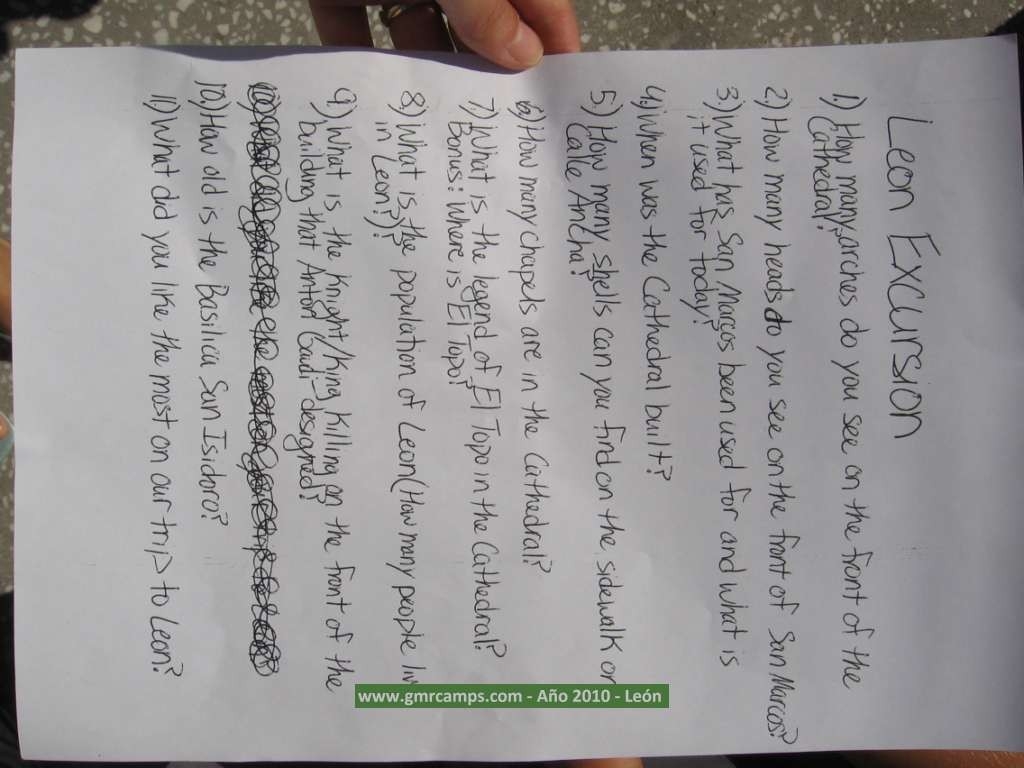 Leon Excursion
1.) How many arches do you see on the front of the
Cathedral?
2) How many heads do you see on the front of San Marcos?
3.) What has San Marcos been used for and what is
it used for today?
4.) When was the Cathedral built?
5.) How many shells can you find on the sidewalk or
Calle Ancha?
6.) How many chapels are in the Cathedral?
7.) What is the legend of El Topo in the Cathedral?
Bonus: Where is El Topo?
8.) What is the population of Leon (How many people liv
in Leon?)?
9.) What is the Knight/King Killing on the front of the
building that Anton Gaudi designed?
10.) How old is the Basilica San Isidoro?
11.) What did you like the most on our trip to Leon?
www.gmrcamps.com - Año 2010 - León